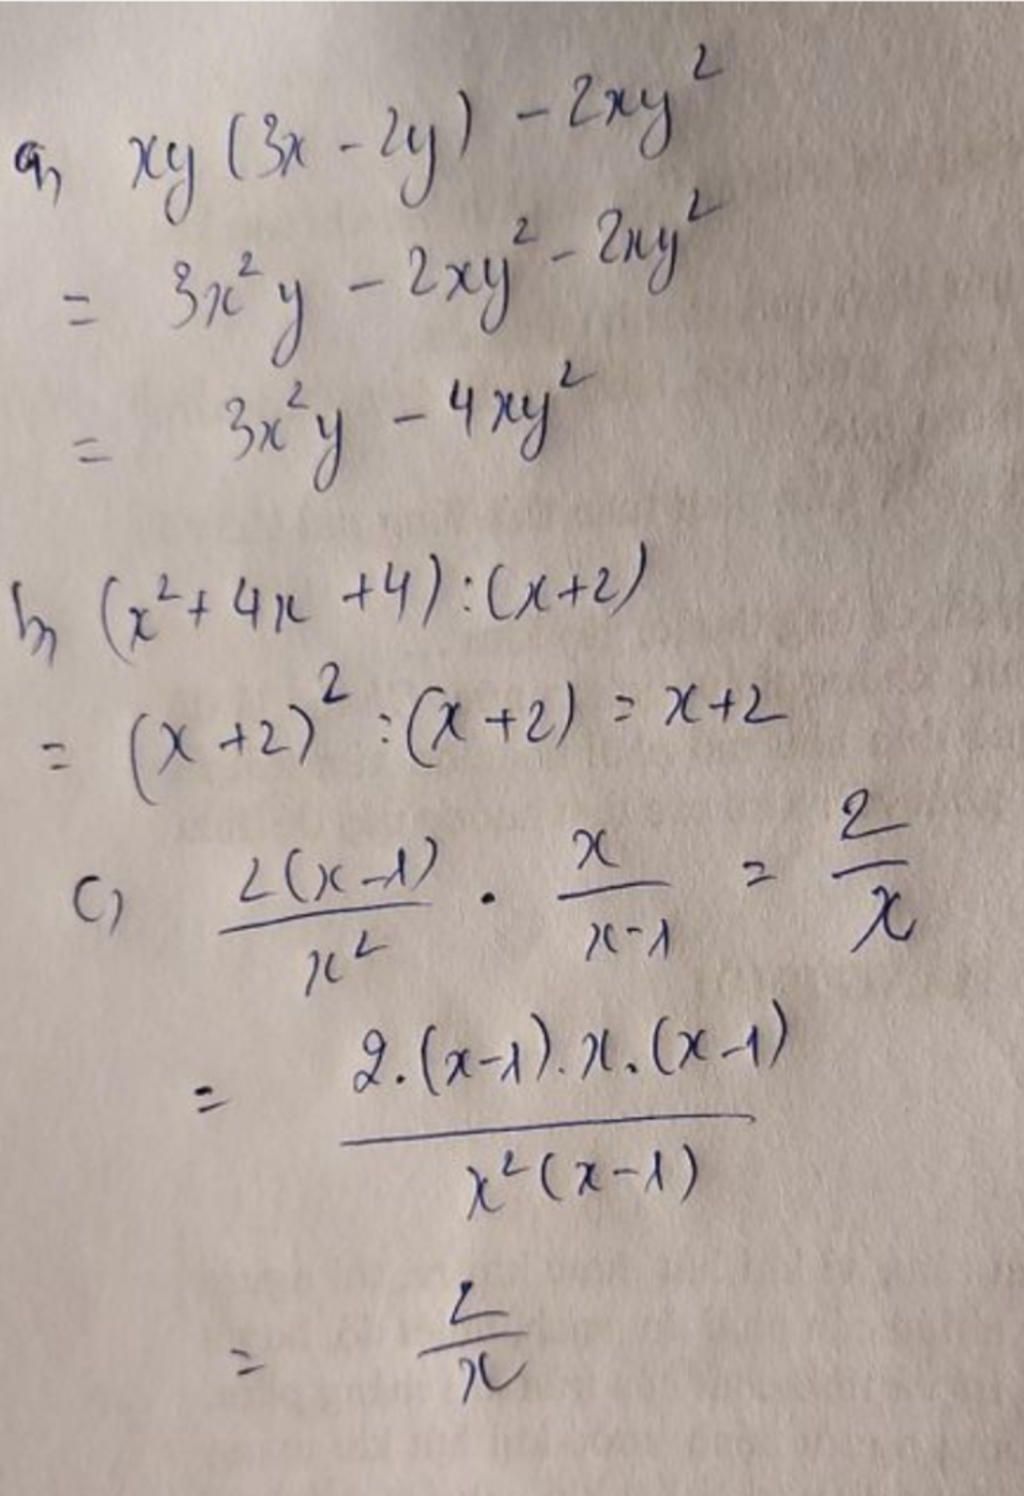 a, xy (3x - 2y) - 2xy²
= 3x²y - 2xy² - 2xy²
= 3x²y - 4xy²
b, (x² + 4x + 4) : (x+2)
= (x+2)² : (x+2) = x+2
c, 2(x-1)/x² . x/(x-1) = 2/x
= 2.(x-1).x.(x-1)/x²(x-1)
= 2/x